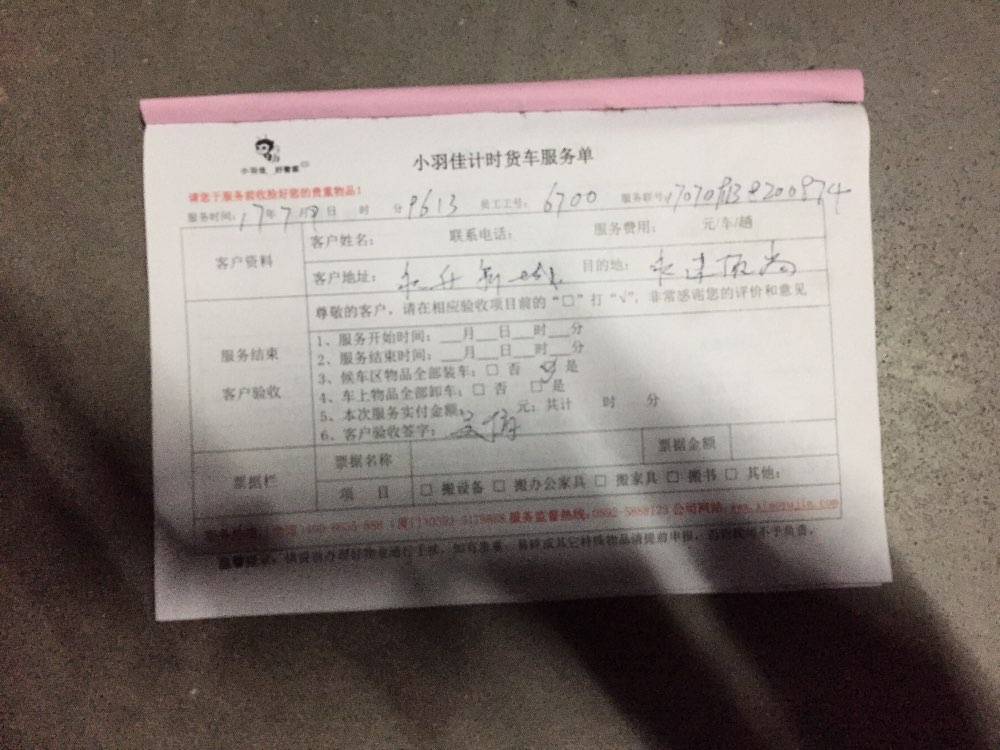 小羽佳 好管家
小羽佳计时货车服务单
请您于服务前收捡好您的贵重物品!
服务时间: 17年7月8日 时 分 9613 员工工号: 6700 服务联号:
客户资料
客户姓名: 联系电话: 服务费用: 元/车/趟
客户地址: 永升新城 目的地:
尊敬的客户,请在相应验收项目前的“□”打“√”,非常感谢您的评价和意见
服务结束
客户验收
1、服务开始时间:__月__日__时__分
2、服务结束时间:__月__日__时__分
3、候车区物品全部装车:□ 否 ☑ 是
4、车上物品全部卸车:□ 否 □ 是
5、本次服务实付金额: 元;共计 时 分
6、客户验收签字:
票据栏
票据名称 票据金额
项 目 □ 搬设备 □ 搬办公家具 □ 搬家具 □ 搬书 □ 其他:
服务监督热线:0592-5888123 公司网站:www.xiaoyujia.com
温馨提示: